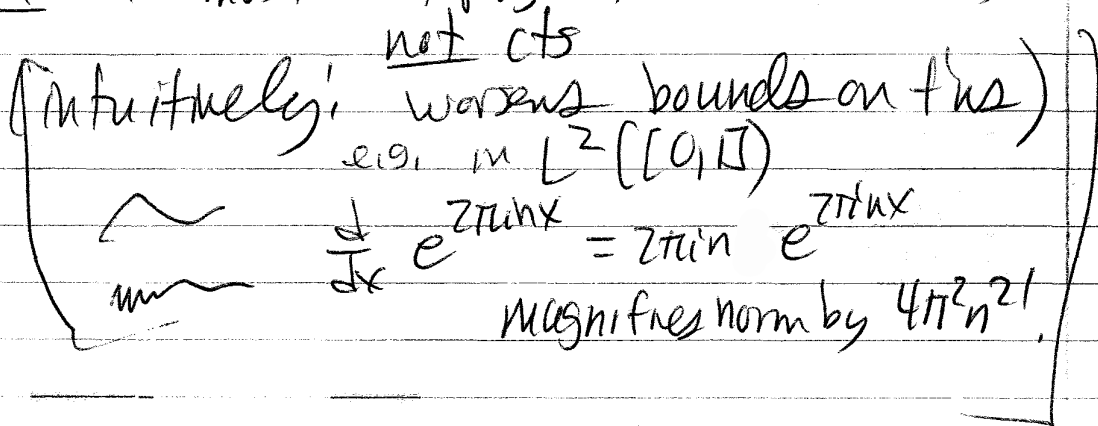 not cts
(intuitively: worsens bounds on f'ns)
e.g. in L²([0,1])
d/dx e^{2πinx} = 2πin e^{2πinx}
magnifies norm by 4π²n²!